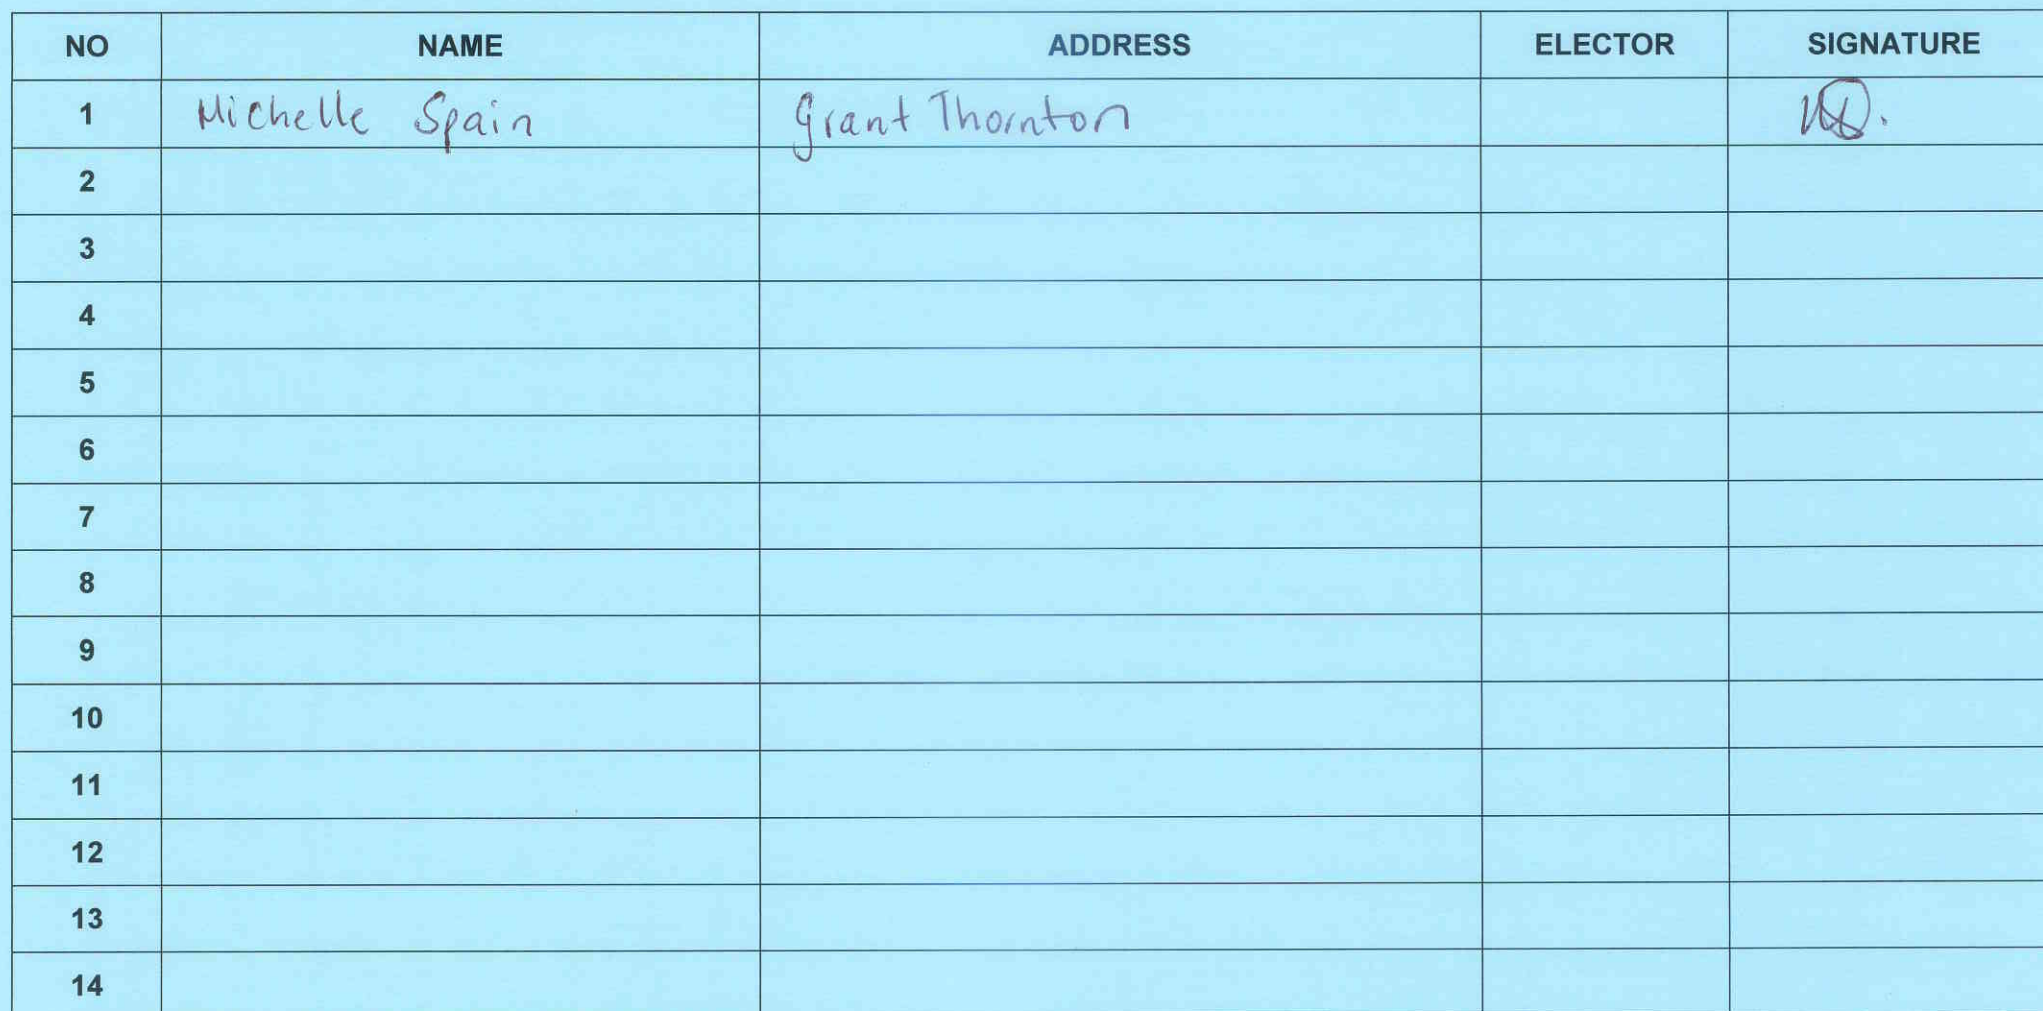 NO NAME ADDRESS ELECTOR SIGNATURE
1 Michelle Spain Grant Thornton
2
3
4
5
6
7
8
9
10
11
12
13
14